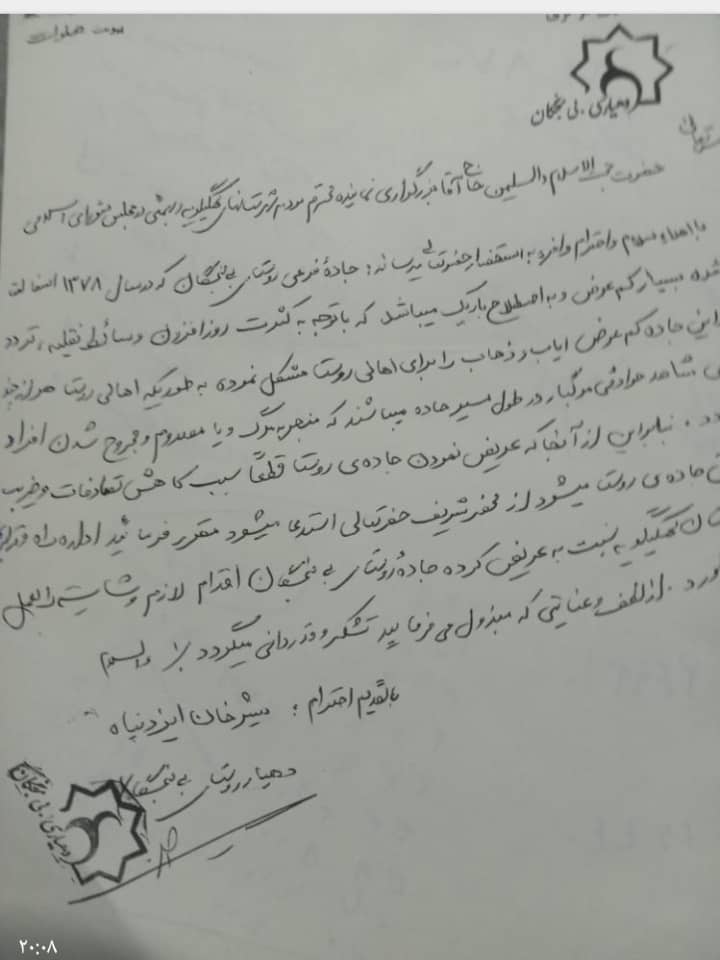 پیوست
دهیاری بی بنجگان
بسمه تعالی
حضرت حجت الاسلام والسلمین حاج آقا بزرگواری نماینده محترم مردم شهرستانهای کهگیلویه و بهمئی در مجلس شورای اسلامی
با اهداء سلام و احترام وافره به استحضار حضرتعالی میرساند: جادهٔ فرعی روستای که در سال ۱۳۷۸ اسفالت
شده بسیار کم عرض و به اصطلاح باریک میباشد که با توجه به کثرت روز افزون وسائط نقلیه، تردد
این جاده کم عرض ایاب و ذهاب را برای اهالی روستا مشکل نموده به طوریکه اهالی روستا هر از چند
شاهد حوادثی مرگبار در طول مسیر جاده میباشند که منجر به مرگ و یا مصدوم و مجروح شدن افراد
بنابراین از آنجا که عریض نمودن جاده‌ی روستا قطعاً سبب کاهش تصادفات و ضریب
جاده‌ی روستا میشود از محضر شریف حضرتعالی استدعا میشود مقرر فرمائید اداره راه
کهگیلویه نسبت به عریض کرده جادهٔ روستای اقدام لازم و شایسته را بعمل
از لطف و عنایتی که مبذول می فرمایید تشکر و قدردانی میگردد والسلام
با تقدیم احترام: شیرخان ایزدپناه
دهیار روستای
دهیاری بی بنجگان
۲۰:۰۸